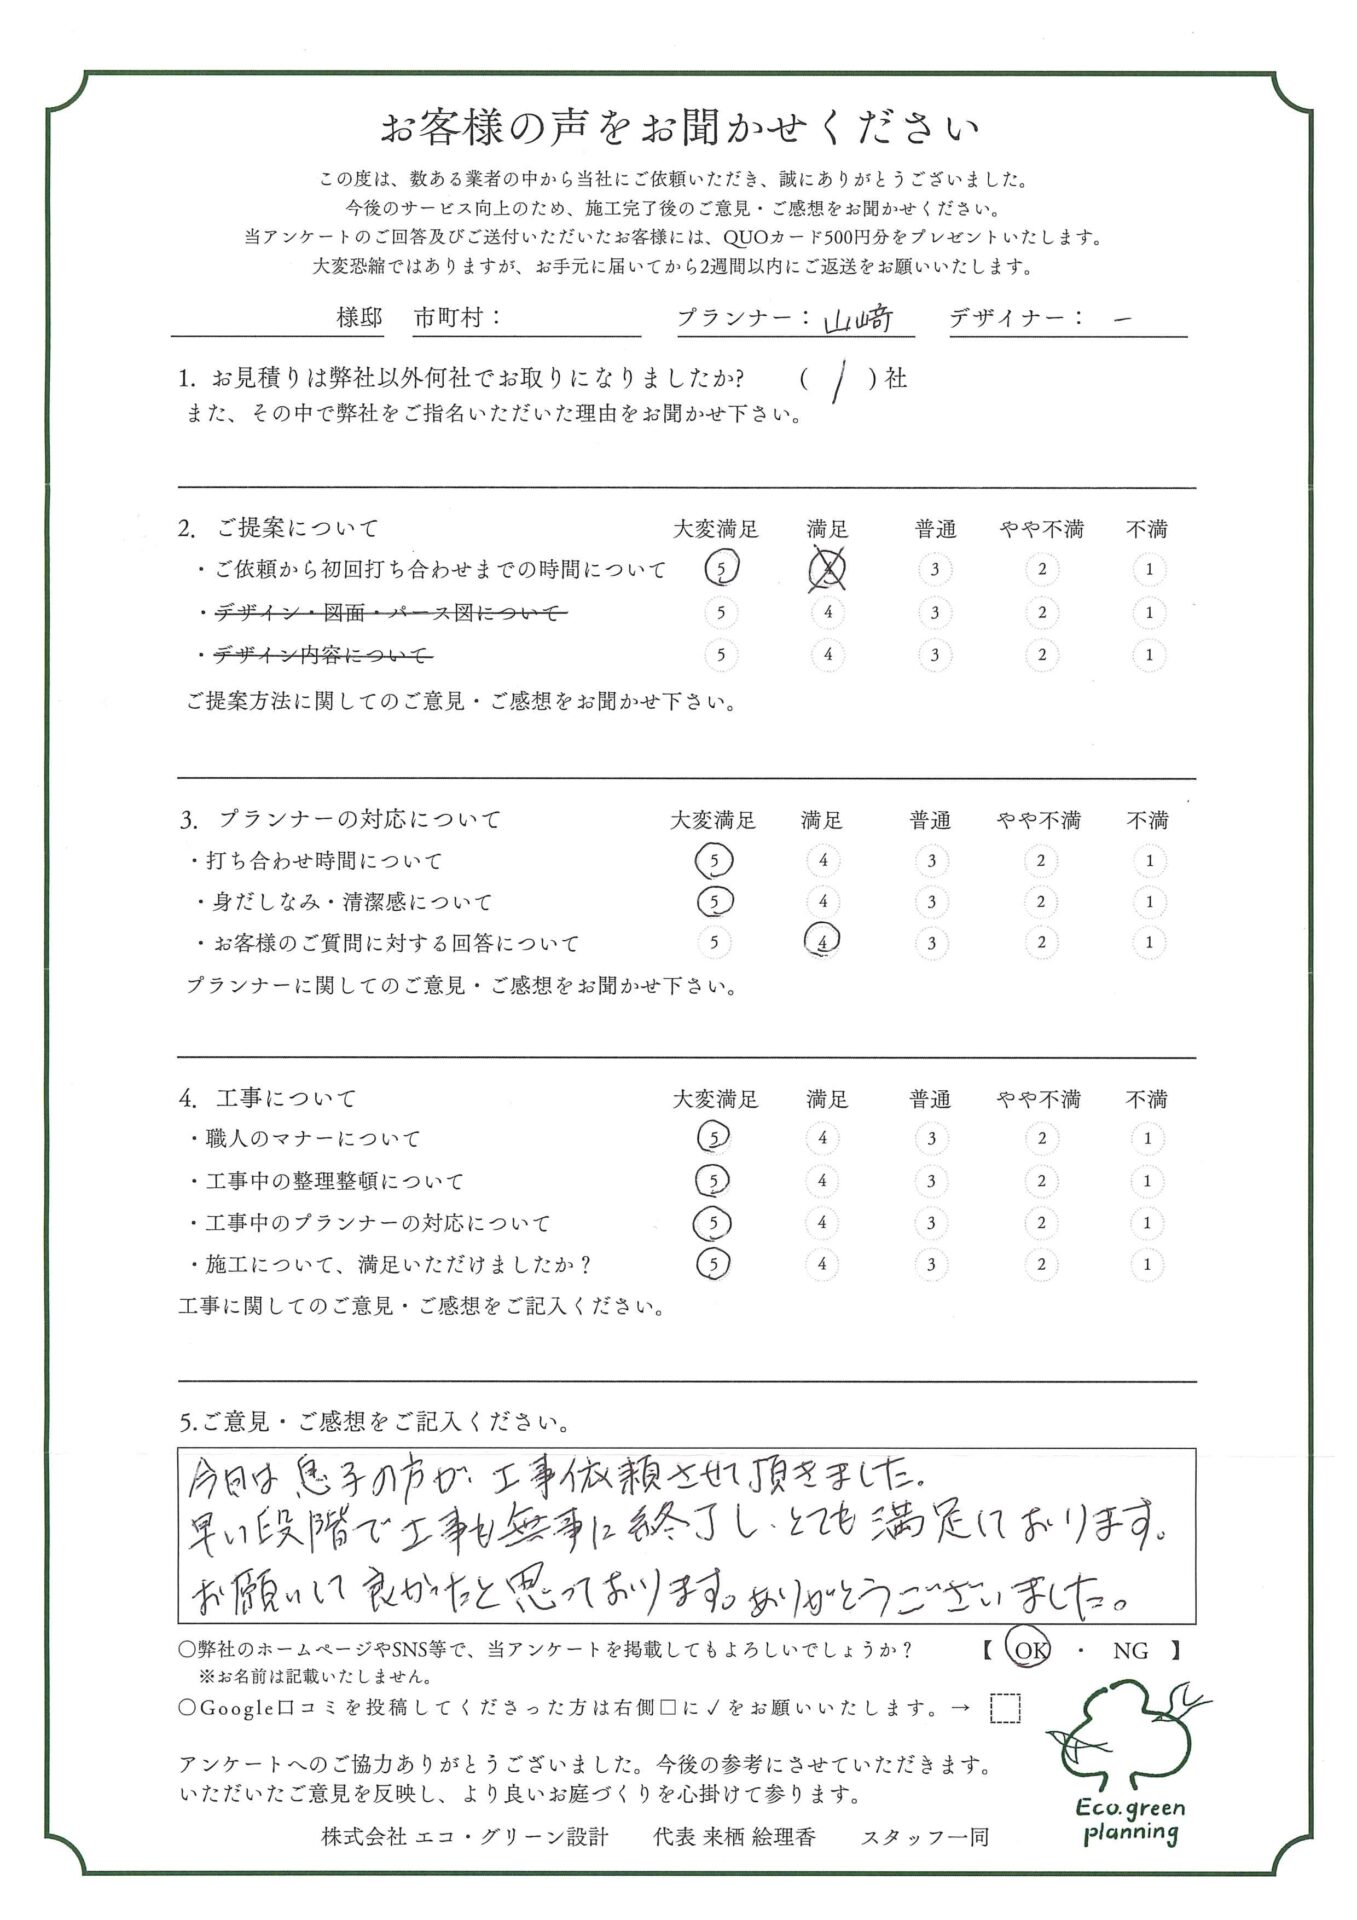 お客様の声をお聞かせください
この度は、数ある業者の中から当社にご依頼いただき、誠にありがとうございました。
今後のサービス向上のため、施工完了後のご意見・ご感想をお聞かせください。
当アンケートのご回答及びご送付いただいたお客様には、QUOカード500円分をプレゼントいたします。
大変恐縮ではありますが、お手元に届いてから2週間以内にご返送をお願いいたします。
様邸 市町村： プランナー：山﨑 デザイナー：ー
1. お見積りは弊社以外何社でお取りになりましたか? ( / )社
また、その中で弊社をご指名いただいた理由をお聞かせ下さい。
2. ご提案について 大変満足 満足 普通 やや不満 不満
・ご依頼から初回打ち合わせまでの時間について 5 4 3 2 1
・デザイン・図面・パース図について 5 4 3 2 1
・デザイン内容について 5 4 3 2 1
ご提案方法に関してのご意見・ご感想をお聞かせ下さい。
3. プランナーの対応について 大変満足 満足 普通 やや不満 不満
・打ち合わせ時間について 5 4 3 2 1
・身だしなみ・清潔感について 5 4 3 2 1
・お客様のご質問に対する回答について 5 4 3 2 1
プランナーに関してのご意見・ご感想をお聞かせ下さい。
4. 工事について 大変満足 満足 普通 やや不満 不満
・職人のマナーについて 5 4 3 2 1
・工事中の整理整頓について 5 4 3 2 1
・工事中のプランナーの対応について 5 4 3 2 1
・施工について、満足いただけましたか？ 5 4 3 2 1
工事に関してのご意見・ご感想をご記入ください。
5.ご意見・ご感想をご記入ください。
今回は息子の方が、工事依頼させて頂きました。
早い段階で工事も無事に終了し、とても満足しております。
お願いして良かったと思っております。ありがとうございました。
〇弊社のホームページやSNS等で、当アンケートを掲載してもよろしいでしょうか？ 【 OK ・ NG 】
※お名前は記載いたしません。
〇Google口コミを投稿してくださった方は右側□に✓をお願いいたします。→
アンケートへのご協力ありがとうございました。今後の参考にさせていただきます。
いただいたご意見を反映し、より良いお庭づくりを心掛けて参ります。
株式会社 エコ・グリーン設計 代表 来栖 絵理香 スタッフ一同
Eco.green
planning